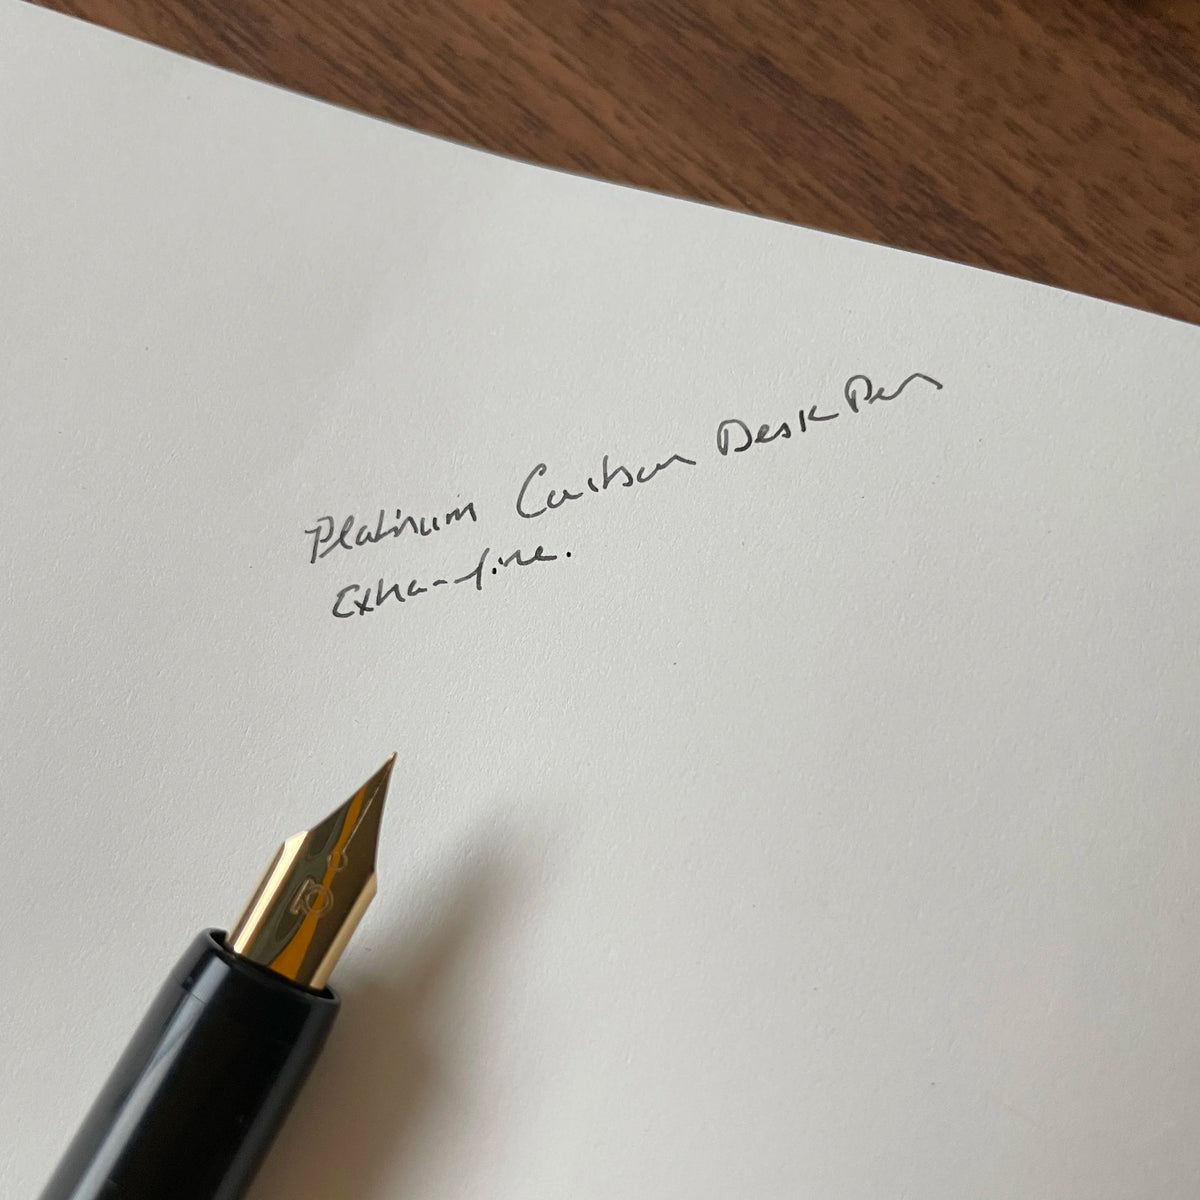 Platinum Carbon Desk Pen
Extra-fine.